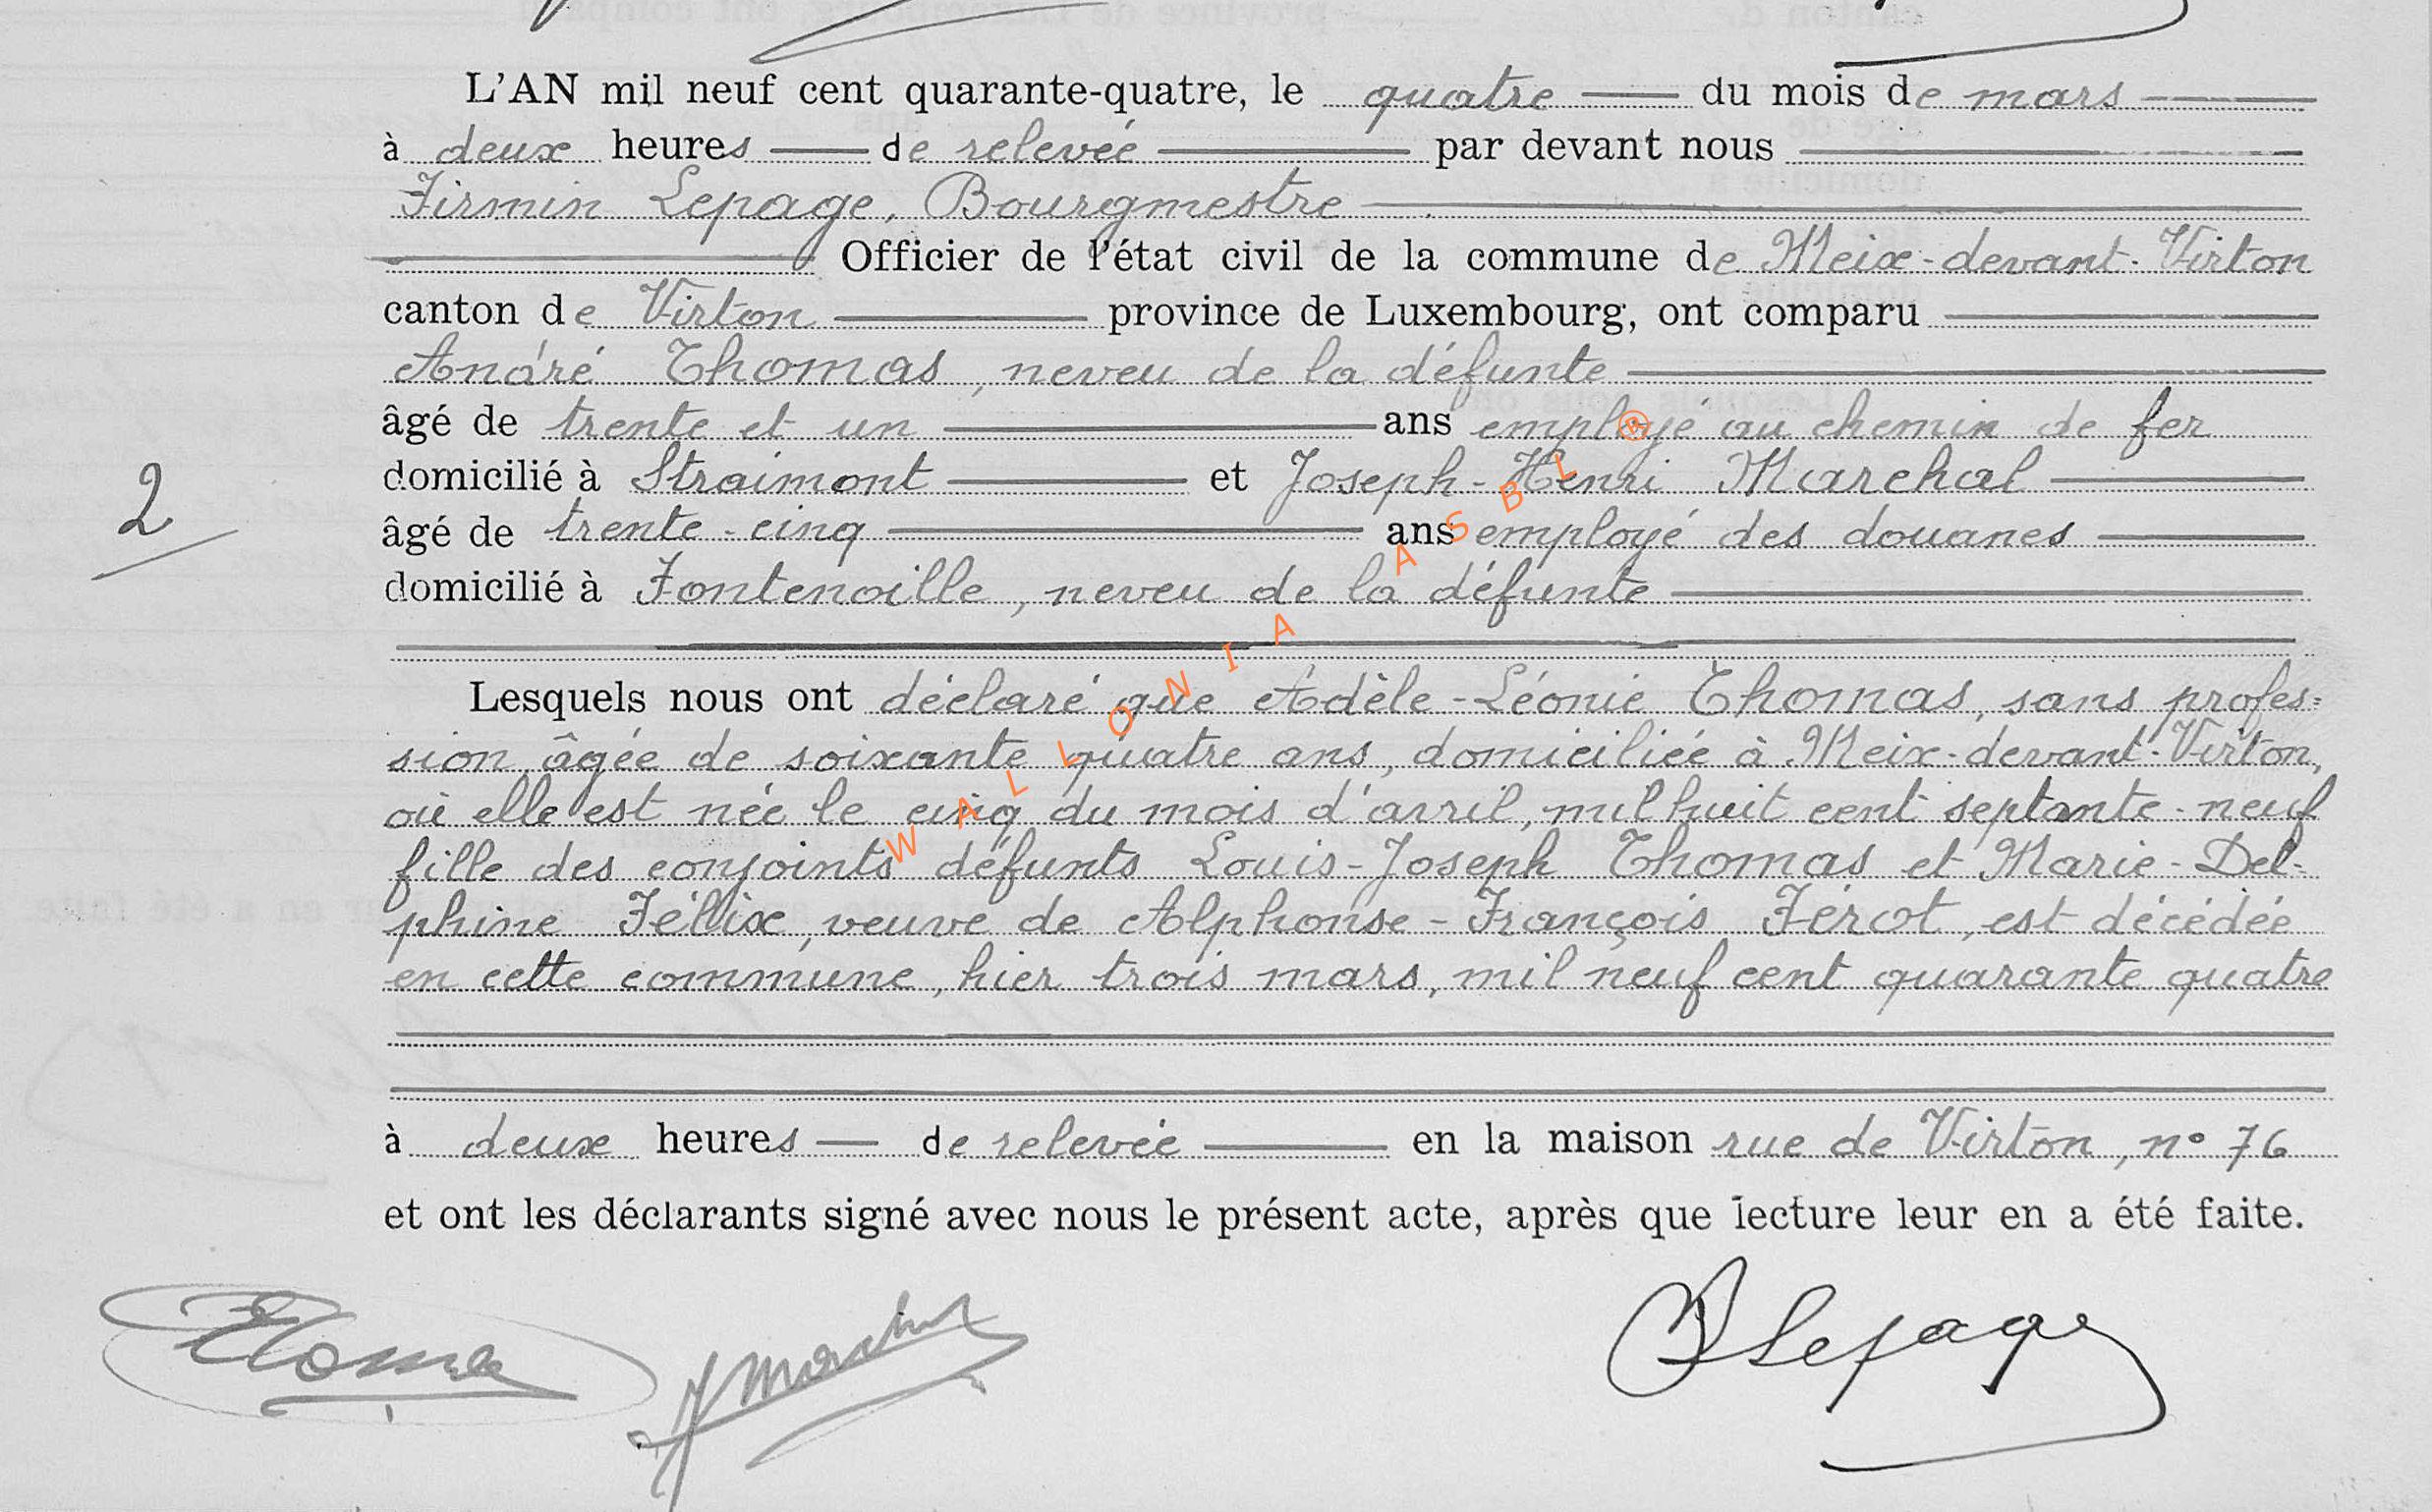 L'AN mil neuf cent quarante-quatre, le quatre du mois de mars
à deux heures de relevée par devant nous
Firmin Lepage, Bourgmestre
Officier de l'état civil de la commune de Meix-devant-Virton
canton de Virton province de Luxembourg, ont comparu
André Thomas, neveu de la défunte
âgé de trente et un ans employé au chemin de fer
domicilié à Straimont et Joseph-Henri Marchal
2
âgé de trente-cinq ans employé des douanes
domicilié à Fontenoille, neveu de la défunte
Lesquels nous ont déclaré que Adèle-Léonie Thomas, sans profes=
sion âgée de soixante quatre ans, domiciliée à Meix-devant-Virton,
où elle est née le cinq du mois d'avril, mil huit cent septante-neuf
fille des conjoints défunts Louis-Joseph Thomas et Marie-Del-
phine Féllix, veuve de Alphonse-François Férot, est décédée
en cette commune, hier trois mars, mil neuf cent quarante quatre
à deux heures de relevée en la maison rue de Virton, n° 76
et ont les déclarants signé avec nous le présent acte, après que lecture leur en a été faite.
Lepage
WALLONIA ASBL ®